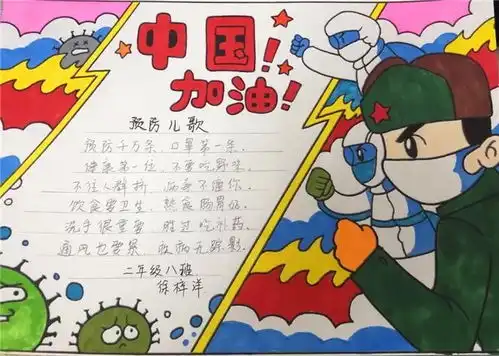 中国！
加油！
预防儿歌
预防千万条，口罩第一条。
健康第一位，不要吃野味。
不往人群挤，病毒不理你。
饮食要卫生，熟食肠胃
洗手很重要，胜过吃补药。
通风也要紧，收病无踪影。
二年级八班
徐梓洋